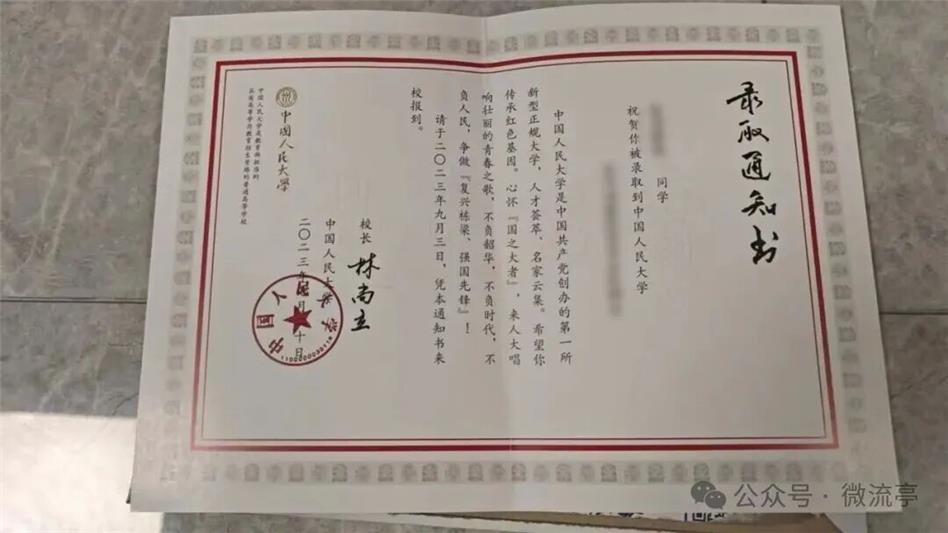 录取通知书
同学
祝贺你被录取到中国人民大学
中国人民大学是中国共产党创办的第一所
新型正规大学，人才荟萃、名家云集。希望你
传承红色基因。心怀『国之大者』，来人大唱
响壮丽的青春之歌，不负韶华，不负时代，不
负人民，争做『复兴栋梁、强国先锋』！
请于二〇二三年九月三日，凭本通知书来
校报到。
校长 林尚立
中国人民大学
二〇二三年 月 十日
中国人民大学
中国人民大学是教育部批准的
具有高等学历教育招生资格的普通高等学校
公众号·微流亭